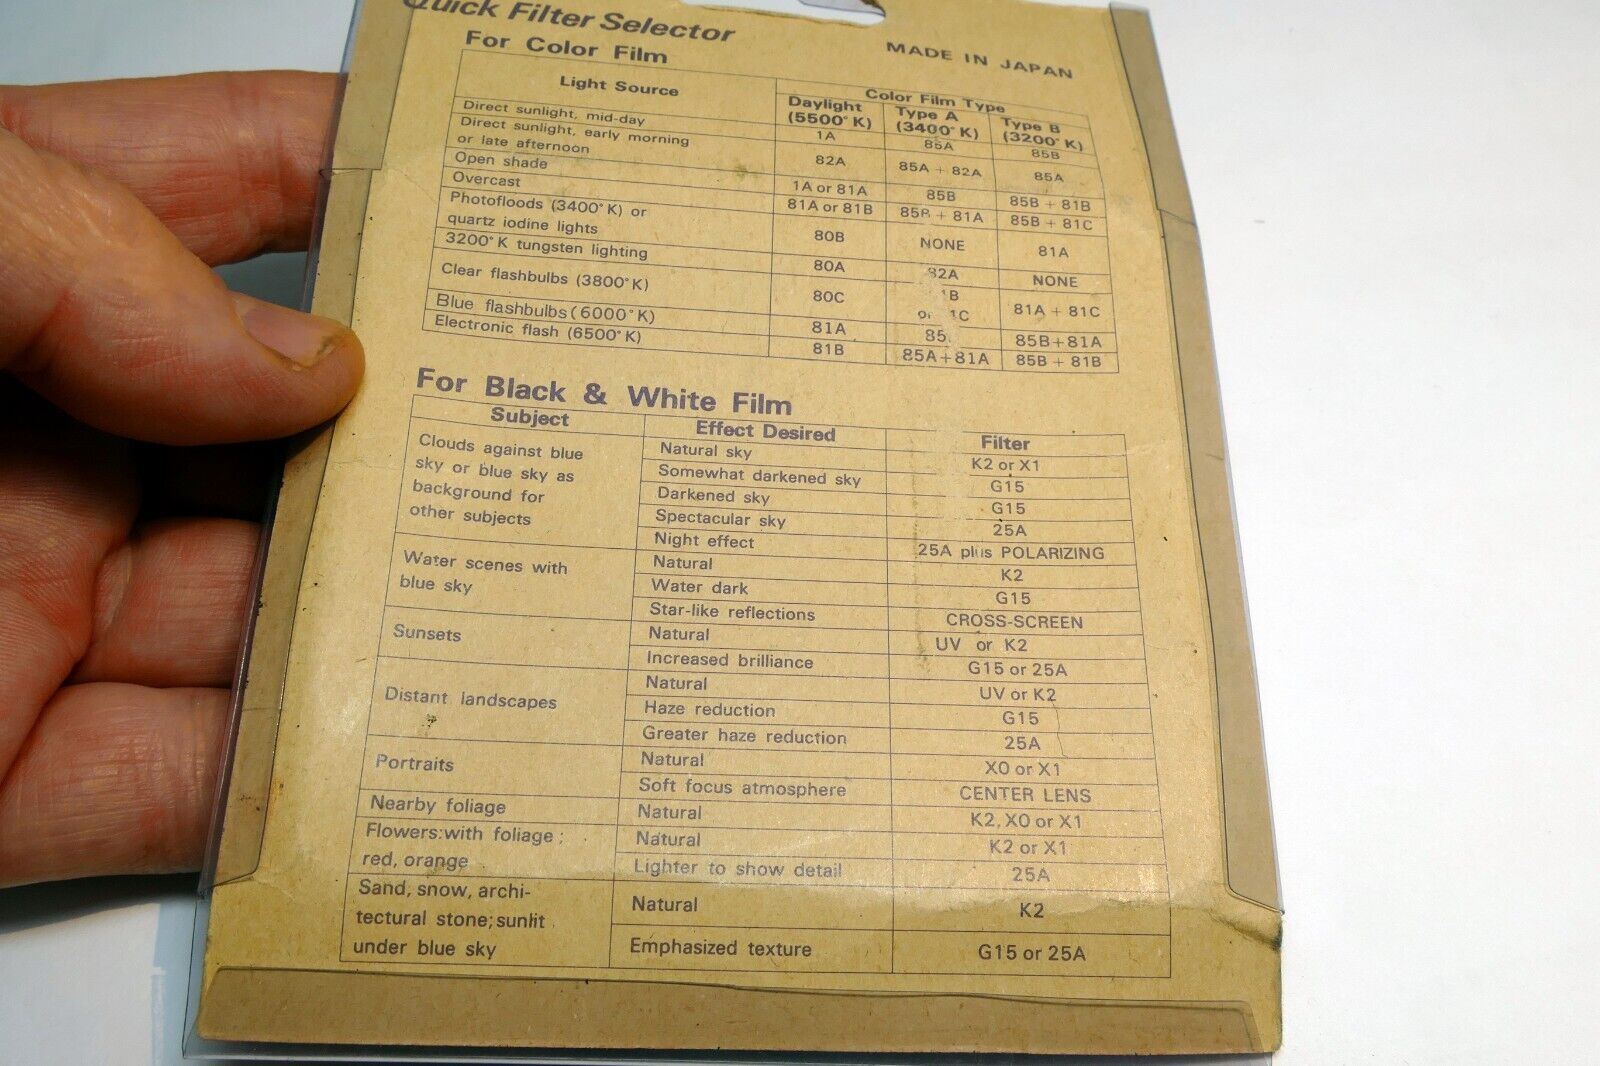 Quick Filter Selector
For Color Film
MADE IN JAPAN
Light Source Color Film Type
Daylight (5500°K) Type A (3400°K) Type B (3200°K)
Direct sunlight, mid-day 1A 85A 85B
Direct sunlight, early morning
or late afternoon 82A 85A + 82A 85A
Open shade 1A or 81A 85B 85B + 81B
Overcast 81A or 81B 85B + 81A 85B + 81C
Photofloods (3400°K) or
quartz iodine lights 80B NONE 81A
3200°K tungsten lighting 80A 82A NONE
Clear flashbulbs (3800°K) 80C 81A + 81C
Blue flashbulbs (6000°K) 81A 85B+81A
Electronic flash (6500°K) 81B 85A+81A 85B + 81B
For Black & White Film
Subject Effect Desired Filter
Clouds against blue
sky or blue sky as
background for
other subjects
Natural sky K2 or X1
Somewhat darkened sky G15
Darkened sky G15
Spectacular sky 25A
Night effect 25A plus POLARIZING
Water scenes with
blue sky
Natural K2
Water dark G15
Star-like reflections CROSS-SCREEN
Sunsets
Natural UV or K2
Increased brilliance G15 or 25A
Distant landscapes
Natural UV or K2
Haze reduction G15
Greater haze reduction 25A
Portraits
Natural X0 or X1
Soft focus atmosphere CENTER LENS
Nearby foliage Natural K2, X0 or X1
Flowers:with foliage;
red, orange
Natural K2 or X1
Lighter to show detail 25A
Sand, snow, archi-
tectural stone; sunlit
under blue sky
Natural K2
Emphasized texture G15 or 25A